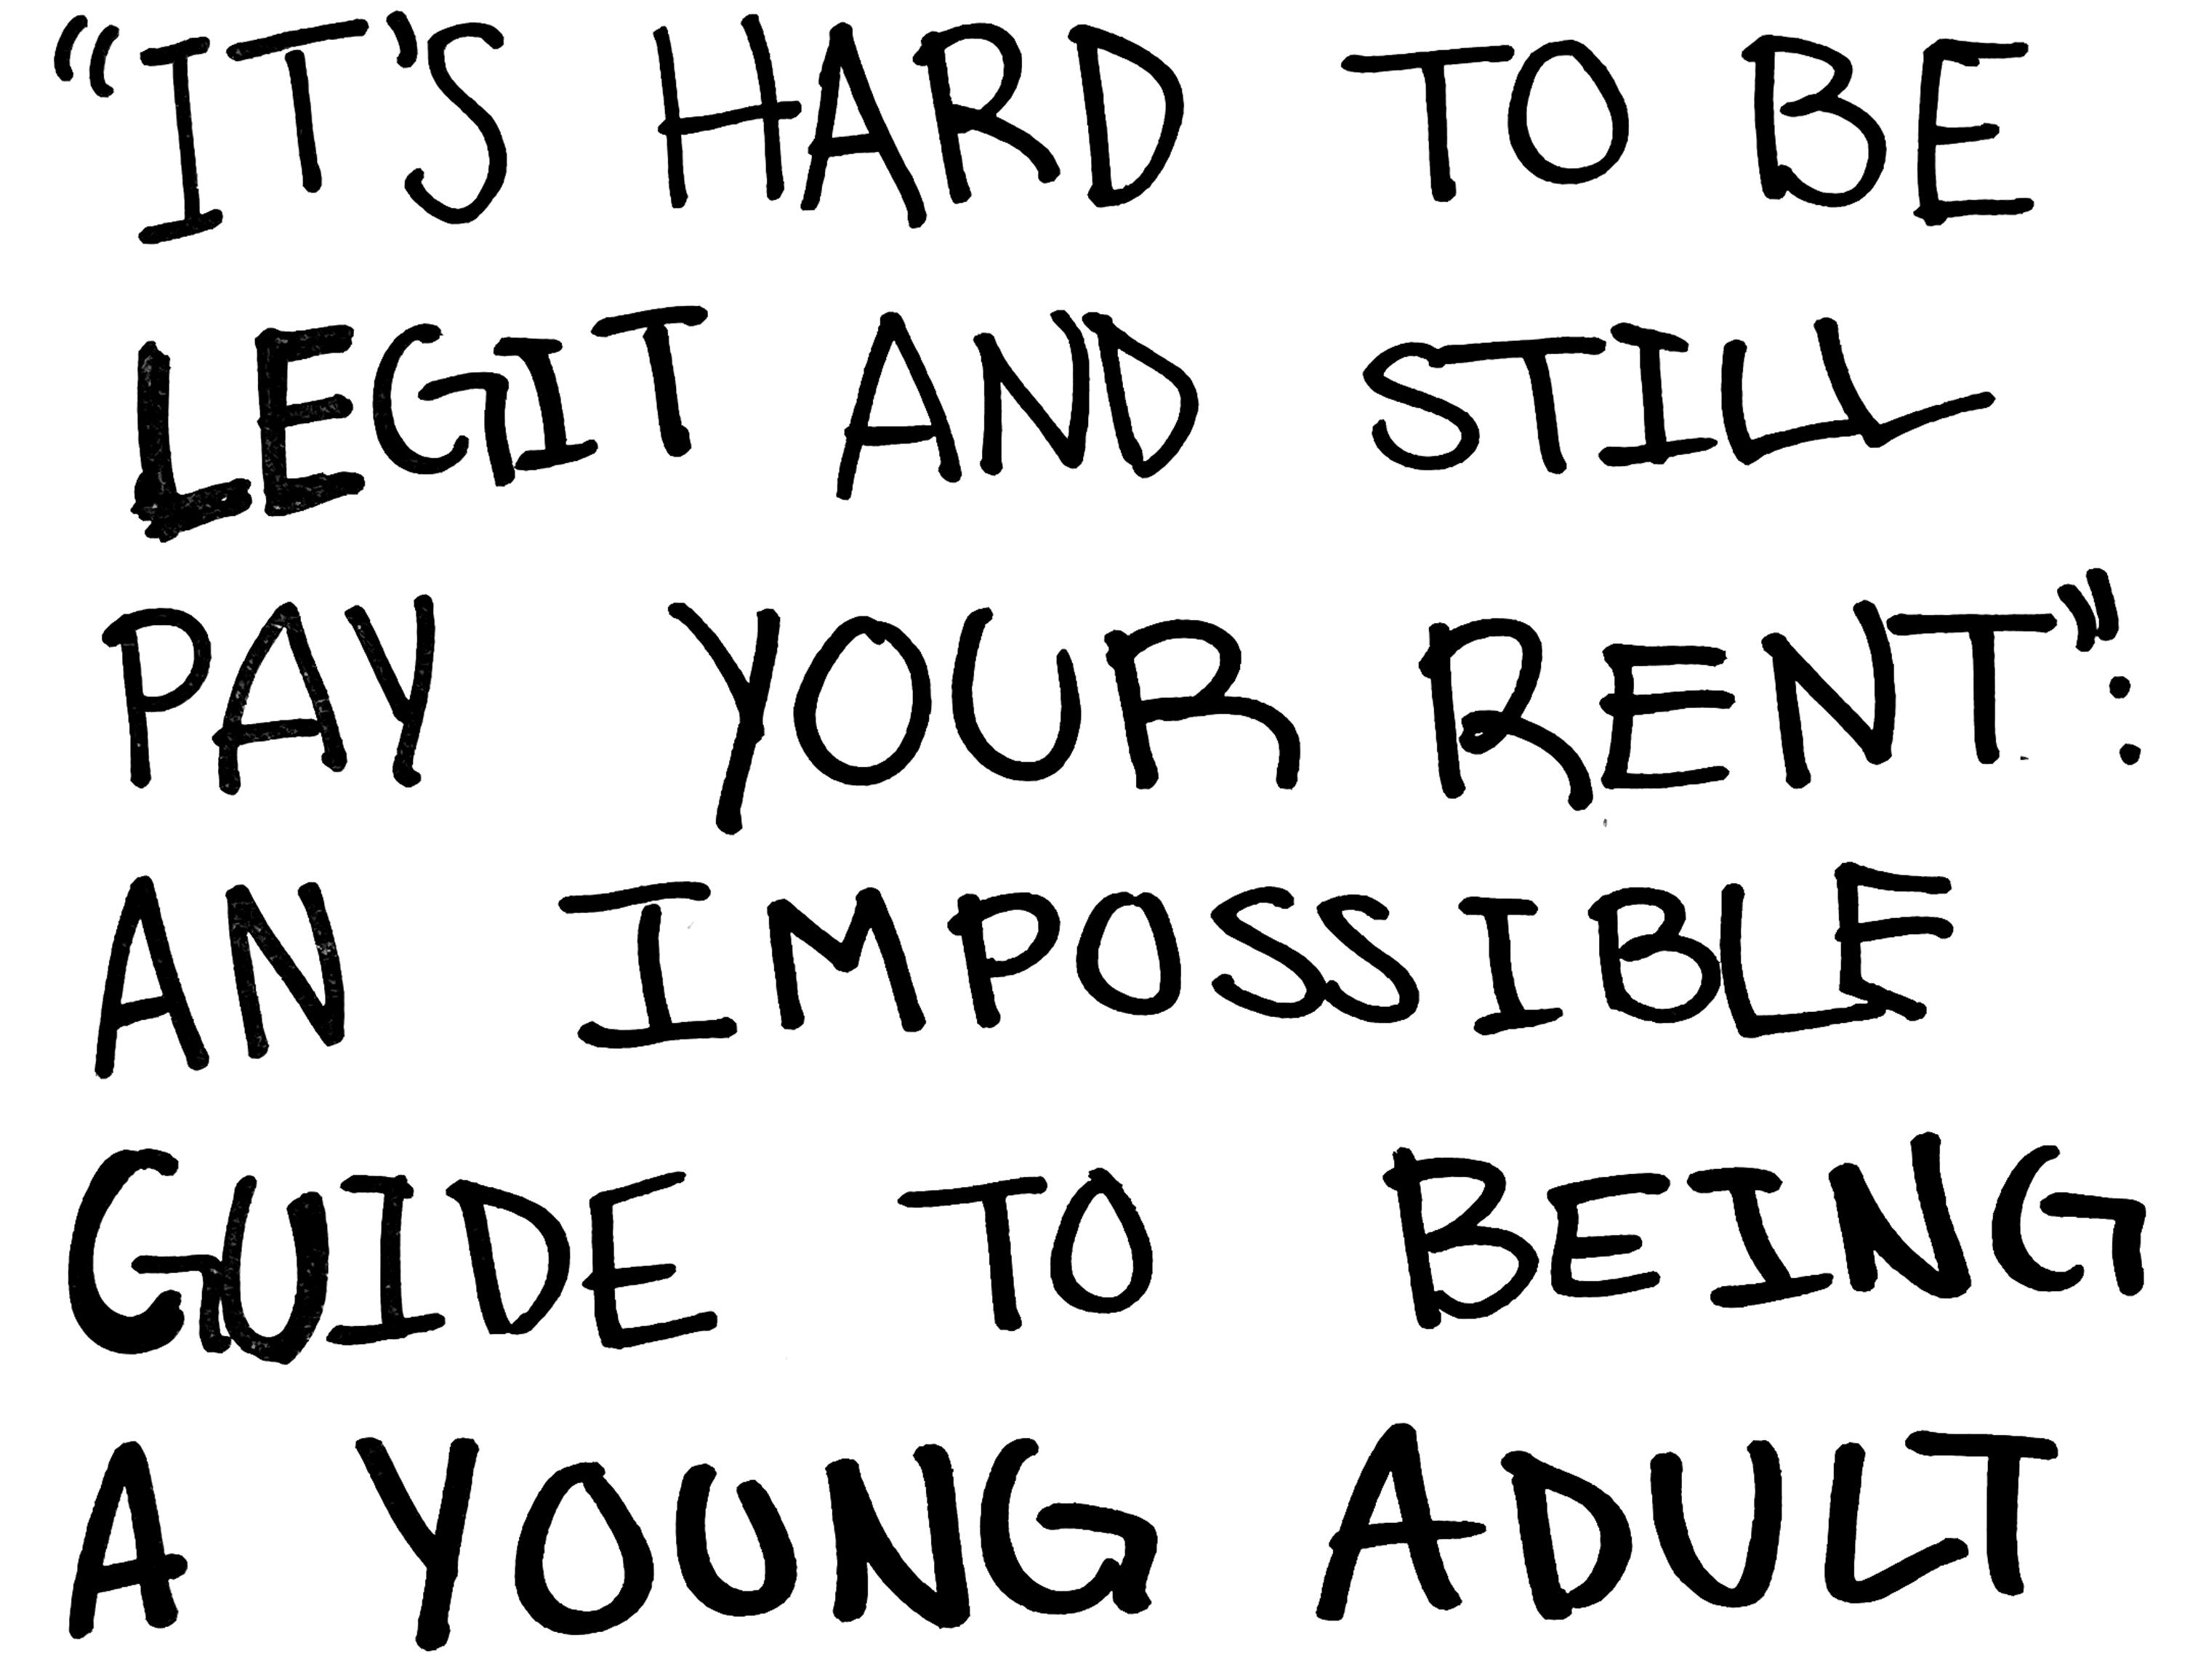 “IT’S HARD TO BE
LEGIT AND STILL
PAY YOUR RENT”:
AN IMPOSSIBLE
GUIDE TO BEING
A YOUNG ADULT